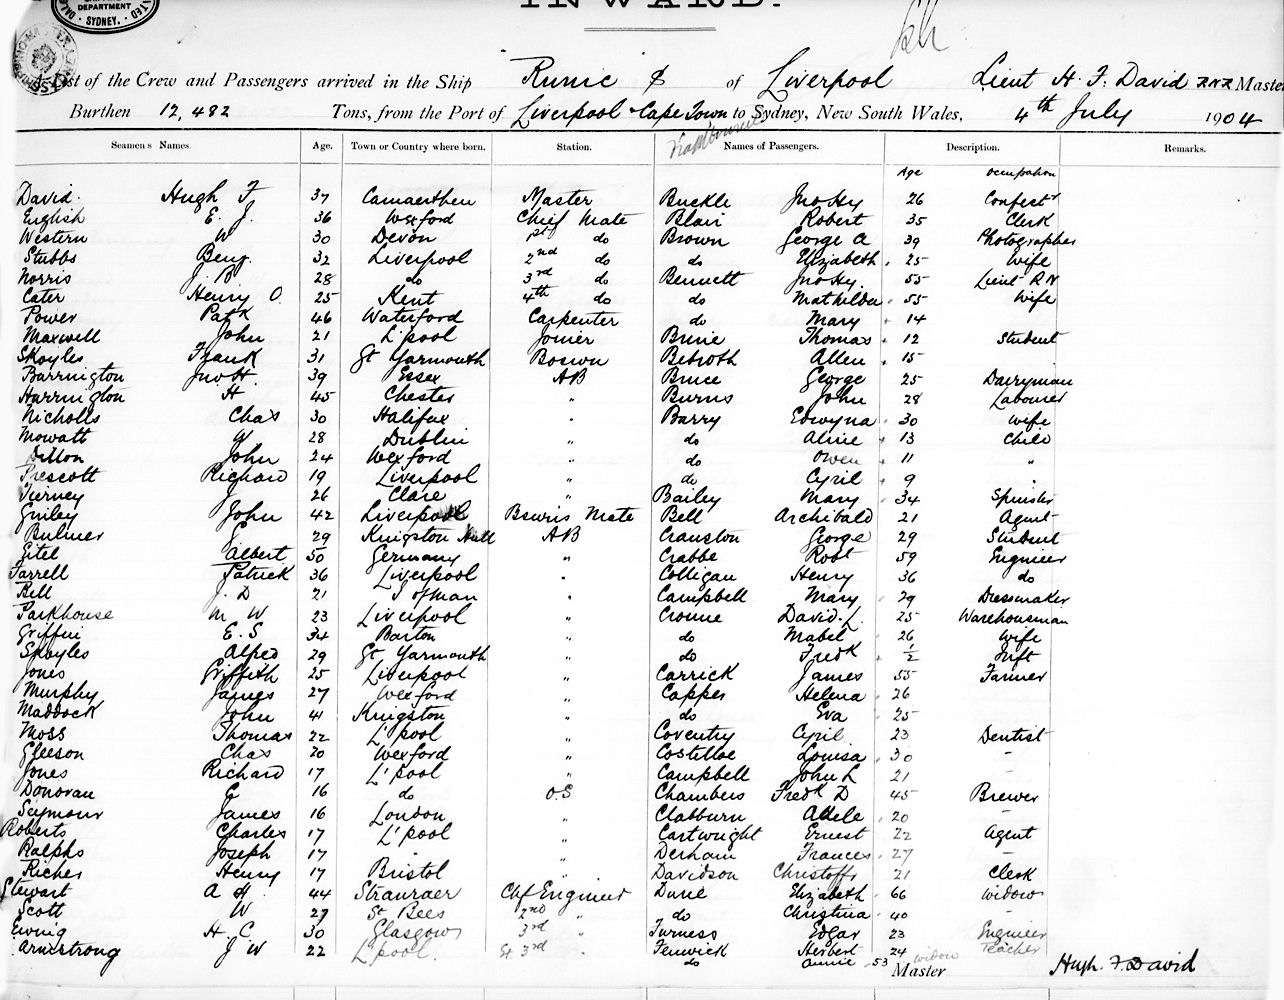 DEPARTMENT
SYDNEY.
INWARD.
A List of the Crew and Passengers arrived in the Ship Runic of Liverpool Lieut H. F. David RNR Master
Burthen 12,482 Tons, from the Port of Liverpool & Cape Town to Sydney, New South Wales, 4th July 1904
via Melbourne
Seamen's Names. Age. Town or Country where born. Station. Names of Passengers. Description. Remarks.
Age Occupation
David Hugh F 37 Camaerthen Master Buckle Jno Hy 26 Confectr
English E. J. 36 Wexford Chief Mate Blair Robert 35 Clerk
Western W 30 Devon 1st do Brown George A 39 Photographer
Stubbs Benj. 32 Liverpool 2nd do do Elizabeth 25 Wife
Norris J. B 28 do 3rd do Bennett Jno Hy. 55 Lieut RN
Cater Henry O. 25 Kent 4th do do Mathilda 55 Wife
Power Patk 46 Waterford Carpenter do Mary 14
Maxwell John 21 L'pool Joiner Birnie Thomas 12 Student
Skoyles Frank 31 Gt Yarmouth Boswn Bebroth Allen 15
Barrington Jno H. 39 Essex AB Bruce George 25 Dairyman
Harrington H 45 Chester " Burns John 28 Labourer
Nicholls Chas 30 Halifax " Barry Edwyna 30 Wife
Mowatt W 28 Dublin " do Aline 13 Child
Dillon John 24 Wexford " do Owen 11 "
Prescott Richard 19 Liverpool " do Cyril 9 "
Tierney J 26 Clare " Bailey Mary 34 Spinster
Guiley John 42 Liverpool Boswns Mate Bell Archibald 21 Agent
Bulmer G 29 Kingston Hull AB Cranston George 29 Student
Eitel Albert 50 Germany " Crabbe Robt 59 Engineer
Farrell Patrick 36 Liverpool " Colligan Henry 36 do
Bell J. D 21 I of Man " Campbell Mary 29 Dressmaker
Parkhouse M W 23 Liverpool " Crowne David. L. 25 Warehouseman
Griffin E. S 34 Barton " do Mabel 26 Wife
Skoyles Alfred 29 Gt Yarmouth " do Fredk ½ Inft
Jones Griffith 25 Liverpool " Carrick James 55 Farmer
Murphy James 27 Wexford " Capper Helena 26
Maddock John 41 Kingston " do Eva 25
Moss Thomas 22 L'pool " Coventry Cyril 23 Dentist
Gleeson Chas 20 Wexford " Costelloe Louisa 30 -
Jones Richard 17 L'pool " Campbell John L 21 -
Donovan G 16 do O.S Chambers Fredk D 45 Brewer
Seymour James 16 London " Clabburn Adele 20 -
Roberts Charles 17 L'pool " Cartwright Ernest 22 Agent
Ralphs Joseph 17 " " Derham Frances 27 -
Riches Henry 17 Bristol " Davidson Christoffr 21 Clerk
Stewart A H. 44 Stranraer Chf Engineer Dane Elizabeth 66 Widow
Scott W 27 St Bees 2nd " do Christina 40 -
Ewing H. C 30 Glasgow 3rd " Furness Edgar 23 Engineer
Armstrong J W 22 L'pool St 3rd " Fenwick Herbert 24 Teacher
do Annie 53 widow
Master Hugh. F. David